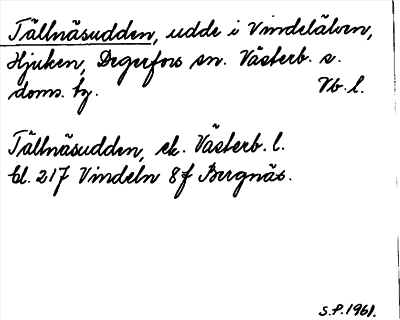 Tällnäsudden, udde i Vindelälven,
Hjuken, Degerfors sn. Västerb. s.
doms. tg. Vb. l.
Tällnäsudden, ek. Västerb. l.
bl. 217 Vindeln 8f Bergnäs.
S.P. 1961.